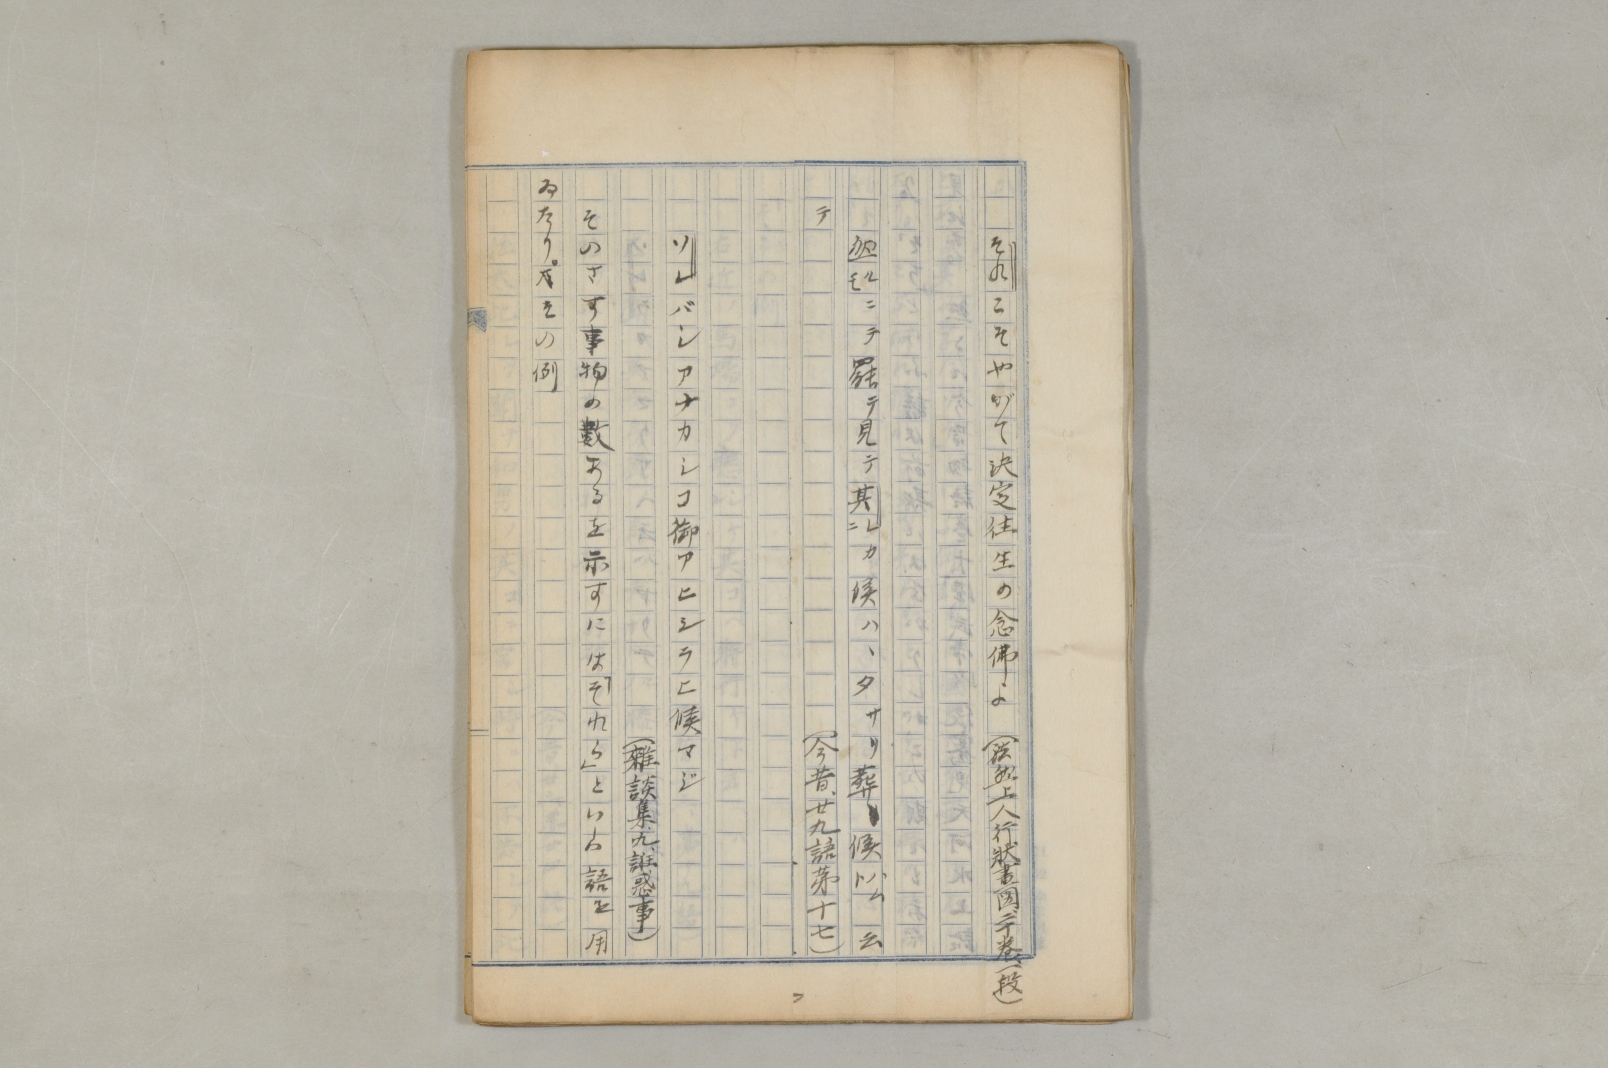 それこそやがて決定往生の念佛よ(法然上人行狀畫図、二十卷、一段)
ニテ罷テ見テ其レニカ候ハヽタサリ葬候ム云
テ(今昔、廿九語第十七)
ソレバシアナカシコ御アヒシラヒ候マジ
(雜談集、九、誑惑事)
そのさす事物の數あるを示すには「それら」といふ語を用
ゐたり。その例